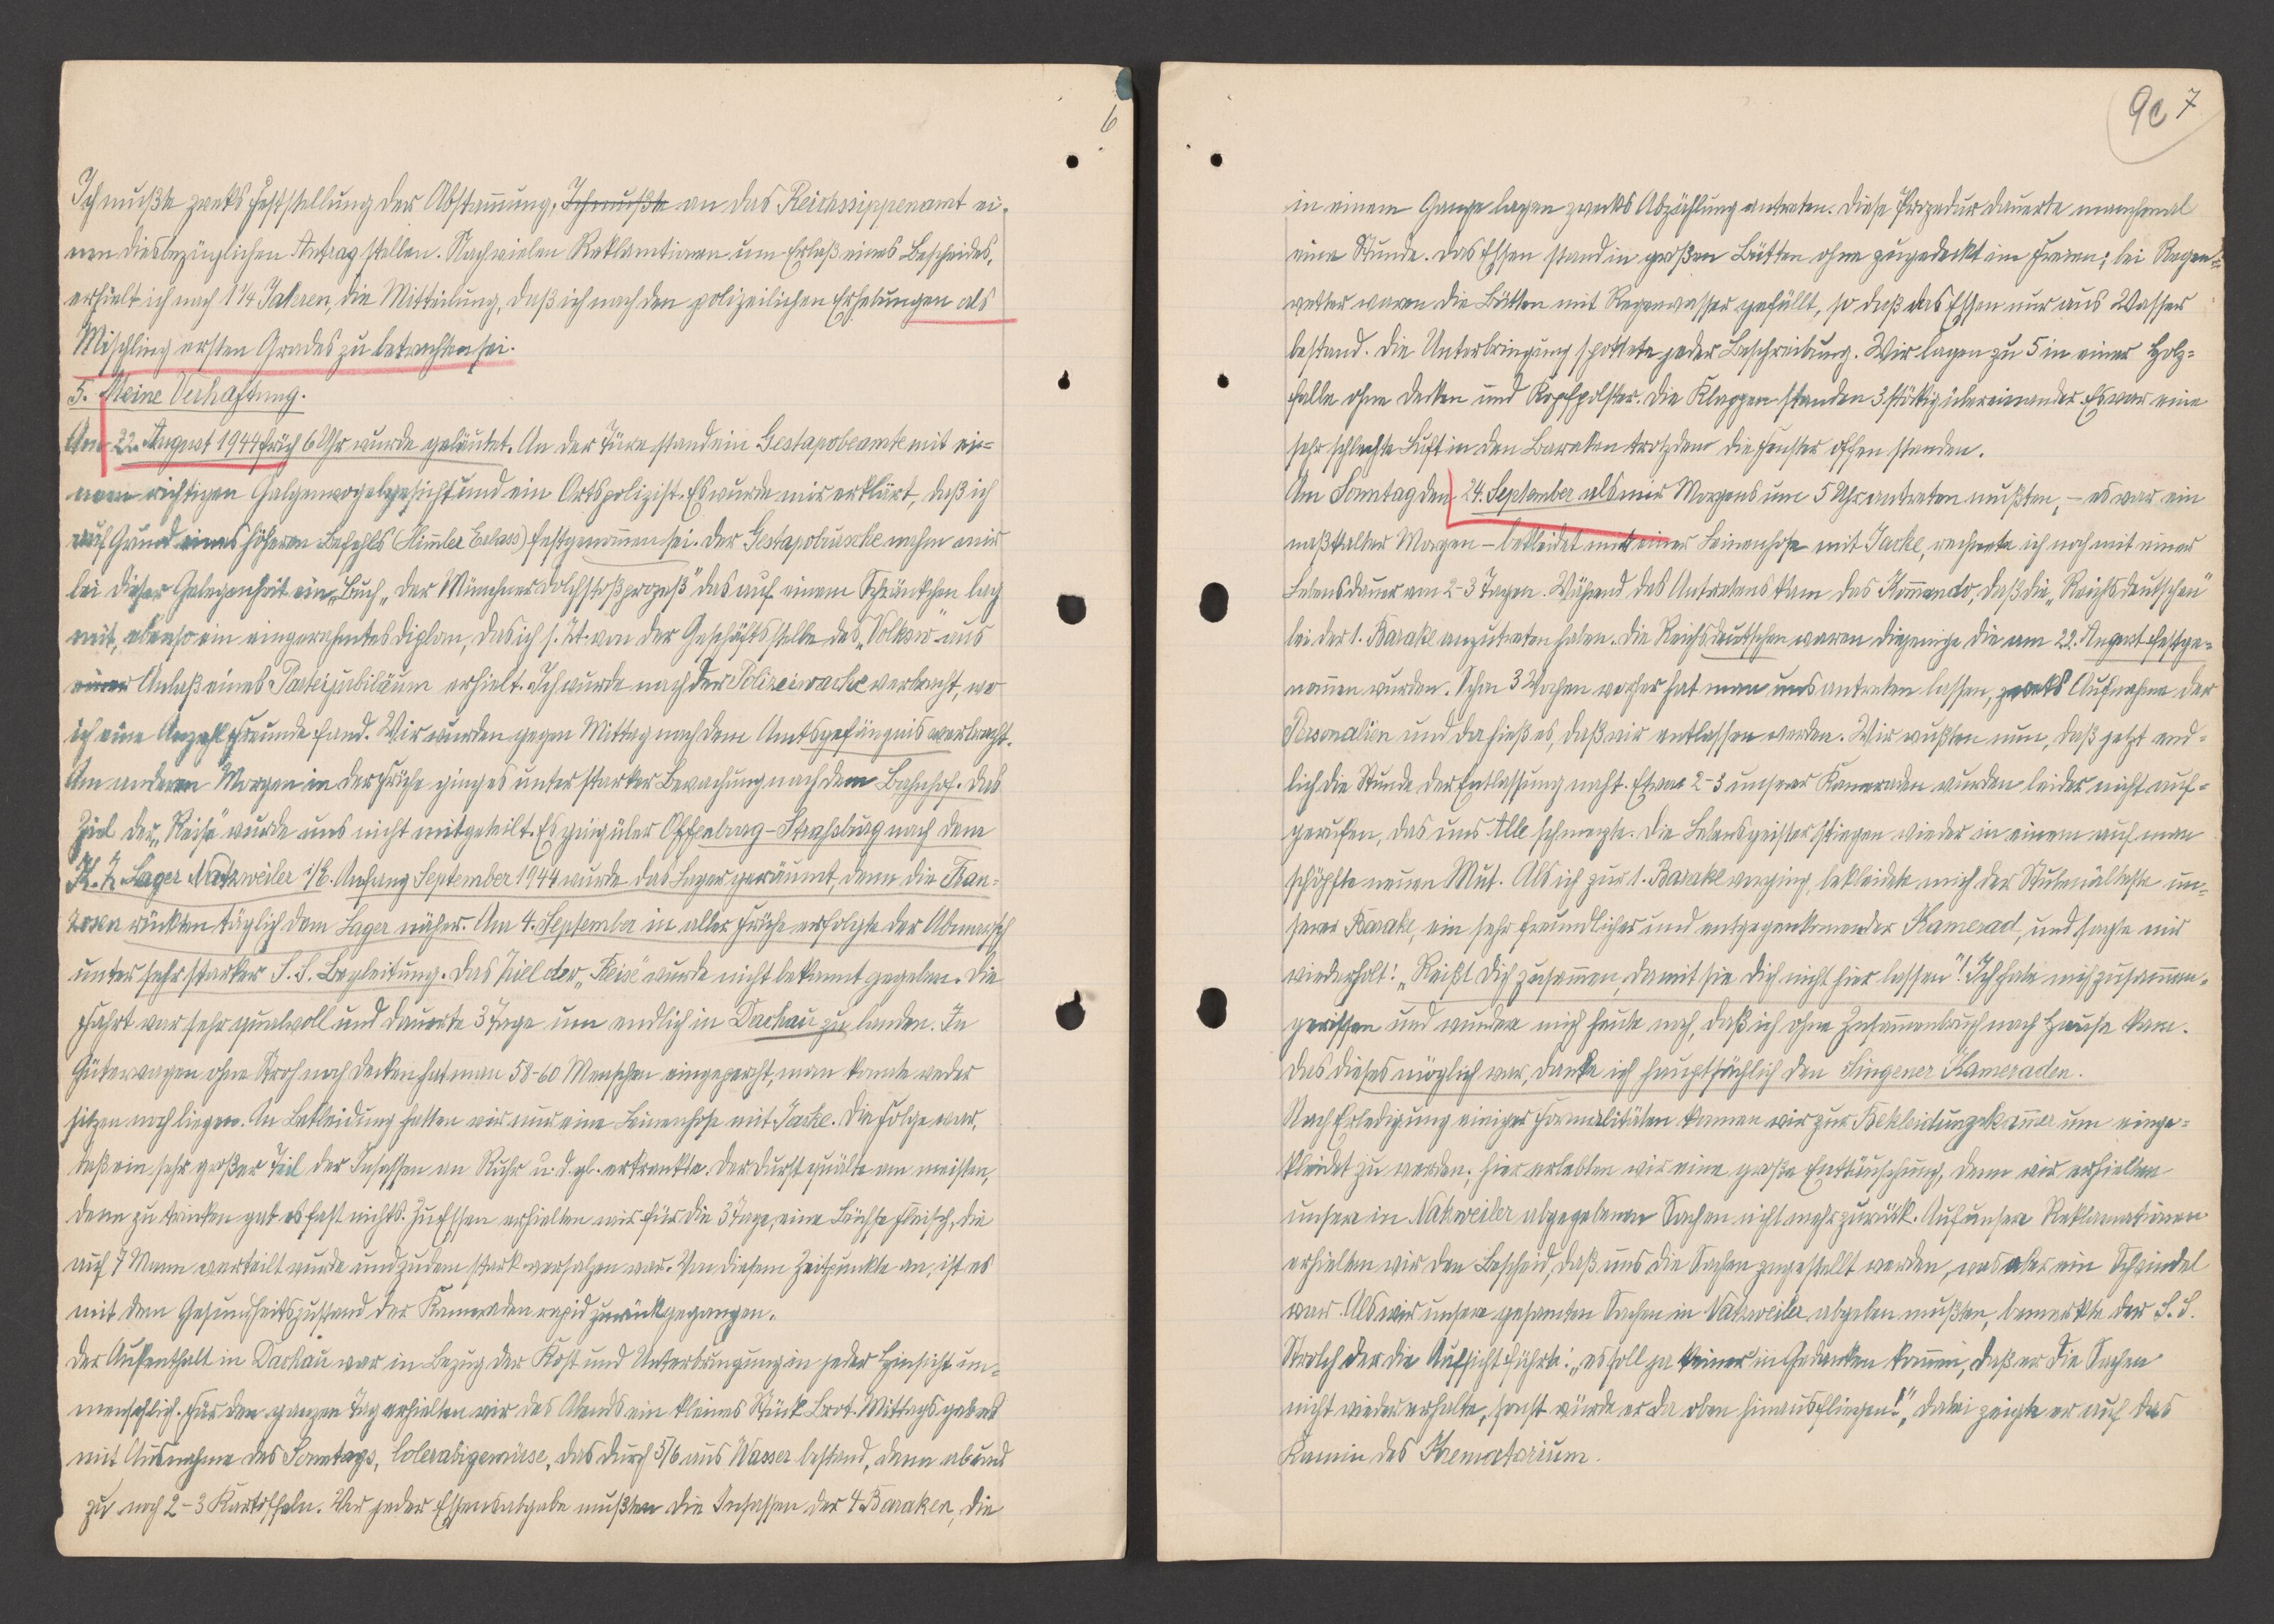 6
Ich mußte zweks Feststellung der Abstam̄ung, Ich mußte an das Reichssippenamt ei-
nen diesbezüglichen Antrag stellen. Nach vielen Reklamtionen um Erlaß eines Bescheides,
erhielt ich nach 1¼ Jahren, die Mitteilung, daß ich nach den polizeilichen Erhebungen als
Mischling ersten Grades zu betrachten sei.
5. Meine Verhaftung.
Am 22. August 1944 früh 6 Uhr wurde geläutet. An der Türe stand ein Gestapobeamte mit ei=
nem richtigen Galgenvogelgesicht und ein Ortspolizist. Es wurde mir erklärt, daß ich
auf Grund eines höheren Befehls (Him̄ler Erlass) festgenom̄en sei. Der Gestapobursche nahm mir
bei dieser Gelegenheit ein „Buch „Der Münchner Dolchstoßprozeß" das auf einem Schränkchen lag
mit, ebenso ein eingerahmtes Diplom, das ich s. Zt. von der Geschäftsstelle des „Volksw" aus
einer Anlaß eines Parteijubiläum erhielt. Ich wurde nach der Polizeiwache verbracht, wo
ich eine Anzahl Freunde fand. Wir wurden gegen Mittag nach dem Amtsgefängnis verbracht.
Am anderen Morgen in der Frühe ging es unter starker Bewachung nach dem Bahnhof. Das
Ziel der „Reise" wurde uns nicht mitgeteilt. Es ging über Offenburg-Straßburg nach dem
K. Z. Lager Natzweiler i/E. Anfang September 1944 wurde das Lager geräumt, denn die Fran=
zosen rückten täglich dem Lager näher. Am 4. September in aller Frühe erfolgte der Abmarsch
unter sehr starker S.S. Begleitung. Das Ziell der „Reise" wurde nicht bekannt gegeben. Die
Fahrt war sehr qualvoll und dauerte 3 Tage um endlich in Dachau zu landen. In
Güterwagen ohne Stroh noch Decken hat man 58-60 Menschen eingepercht, man konnte weder
sitzen noch liegen. An Bekleidung hatten wir nur eine Leinenhose mit Jacke. Die Folge war,
daß ein sehr großer Teil der Insassen an Ruhr u. d. gl. erkrankte. Der Durst quälte am meisten,
denn zu trinken gab es fast nichts. Zu Essen erhielten wir für die 3 Tage, eine Büchse Fleisch, die
auf 7 Mann verteilt wurde und zudem stark versalzen war. Von diesem Zeitpunkte an, ist es
mit dem Gesundheitszustand der Kameraden rapid zurückgegangen.
Der Aufenthalt in Dachau war in Bezug der Kost und Unterbringung in jeder Hinsicht un-
menschlich. Für den ganzen Tag erhielten wir des Abends ein kleines Stück Brot. Mittags gab es
mit Ausnahme des Sonntags, Colerabigemüse, das durch 5/6 aus Wasser bestand, dann ab und
zu noch 2-3 Kartoffeln. Vor jeder Essensabgabe mußten die Insassen der 4 Baraken, die
9c 7
in einem Gange lagen zwecks Abzählung antreten. Diese Prozedur dauerte manchmal
eine Stunde. Das Essen stand in großen Bütten ohne zugedeckt im Freien; bei Regen=
wetter waren die Bütten mit Regenwasser gefüllt, so daß das Essen nur aus Wasser
bestand. Die Unterbringung spottete jeder Beschreibung. Wir lagen zu 5 in einer Holz=
falle ohne Decken und Kopfpolster. Die Klappen standen 3 stöckig übereinander. Es war eine
sehr schlechte Luft in den Baraken trotzdem die Fenster offen standen.
Am Sonntag den 24. September als wir Morgens um 5 Uhr antreten mußten, - es war ein
naßkalter Morgen - bekleidet mit einer Leinenhose mit Jacke, rechnete ich noch mit einer
Lebensdauer von 2-3 Tagen. Während des Antretens kam das Kom̄ando, daß die „Reichsdeutschen"
bei der 1. Barake anzutreten haben. Die Reichsdeutschen waren diejenige die am 22. August festge=
nom̄en wurden. Schon 3 Wochen vorher hat man uns antreten lassen, zweks Aufnahme der
Personalien und da hieß es, daß wir entlassen werden. Wir wußten nun, daß jetzt end=
lich die Stunde der Entlassung naht. Etwa 2-3 unserer Kameraden wurden leider nicht auf=
gerufen, das uns Alle schmerzte. Die Lebensgeister stiegen wieder in einem auf man
schöpfte neuen Mut. Als ich zur 1. Barake vorging, bekleidete mich der Stubenälteste un-
serer Barake, ein sehr freundlicher und entgegenkom̄ender Kamerad, und sagte mir
wiederholt: „Reißt Dich zusam̄en, damit sie Dich nicht hier lassen"! Ich habe mich zusam̄en-
gerissen und wundere mich heute noch, daß ich ohne Zusam̄enbruch nach Hause kam.
Das dieses möglich war, danke ich hauptsächlich den Singener Kameraden.
Nach Erledigung einiger Formalitäten kamen wir zur Bekleidungskam̄er um einge=
kleidet zu werden; hier erlebten wir eine große Enttäuschung, denn wir erhielten
unsere in Natzweiler abgegebenen Sachen nicht mehr zurück. Auf unsere Reklamationen
erhielten wir den Bescheid, daß uns die Sachen zugestellt werden, was aber ein Schwindel
war. Als wir unsere gesamten Sachen in Natzweiler abgeben mußten, bemerkte der S.S.
Strolch der die Aufsicht führte: „es soll ja keiner in Gedanken kom̄en, daß er die Sachen
nicht wieder erhalte, sonst würde er da oben hinausfliegen!", dabei zeigte er auf das
Kamin des Krematorium.